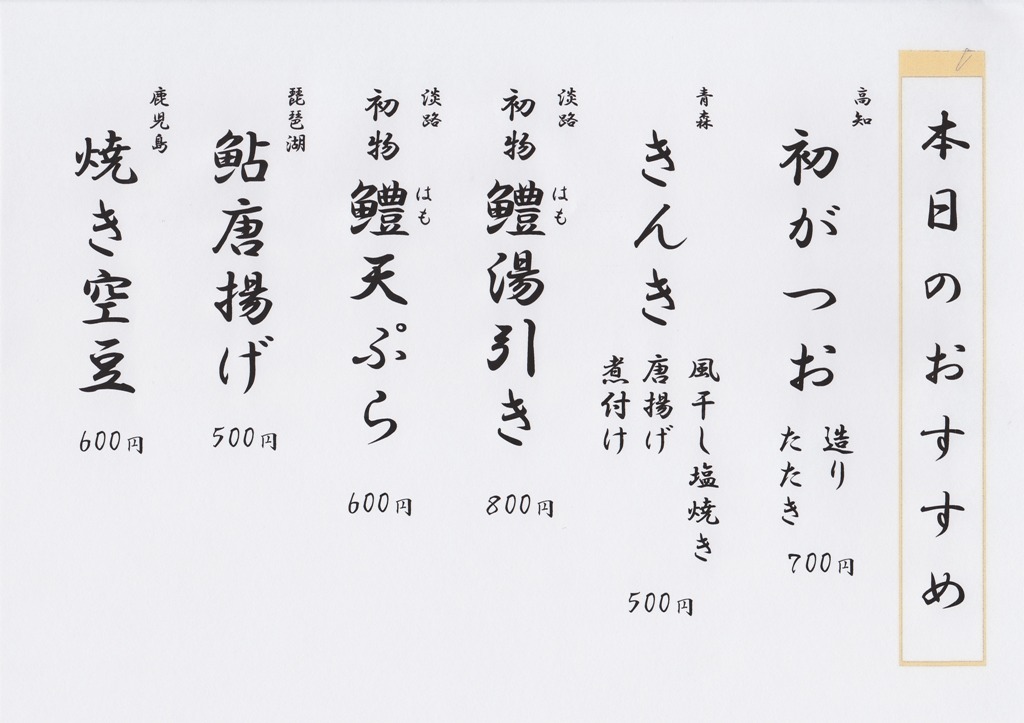 本日のおすすめ
高知
初がつお
造り
たたき
700円
青森
きんき
風干し塩焼き
唐揚げ
煮付け
500円
淡路
初物鱧湯引き
はも
800円
淡路
初物鱧天ぷら
はも
600円
琵琶湖
鮎唐揚げ
500円
鹿児島
焼き空豆
600円